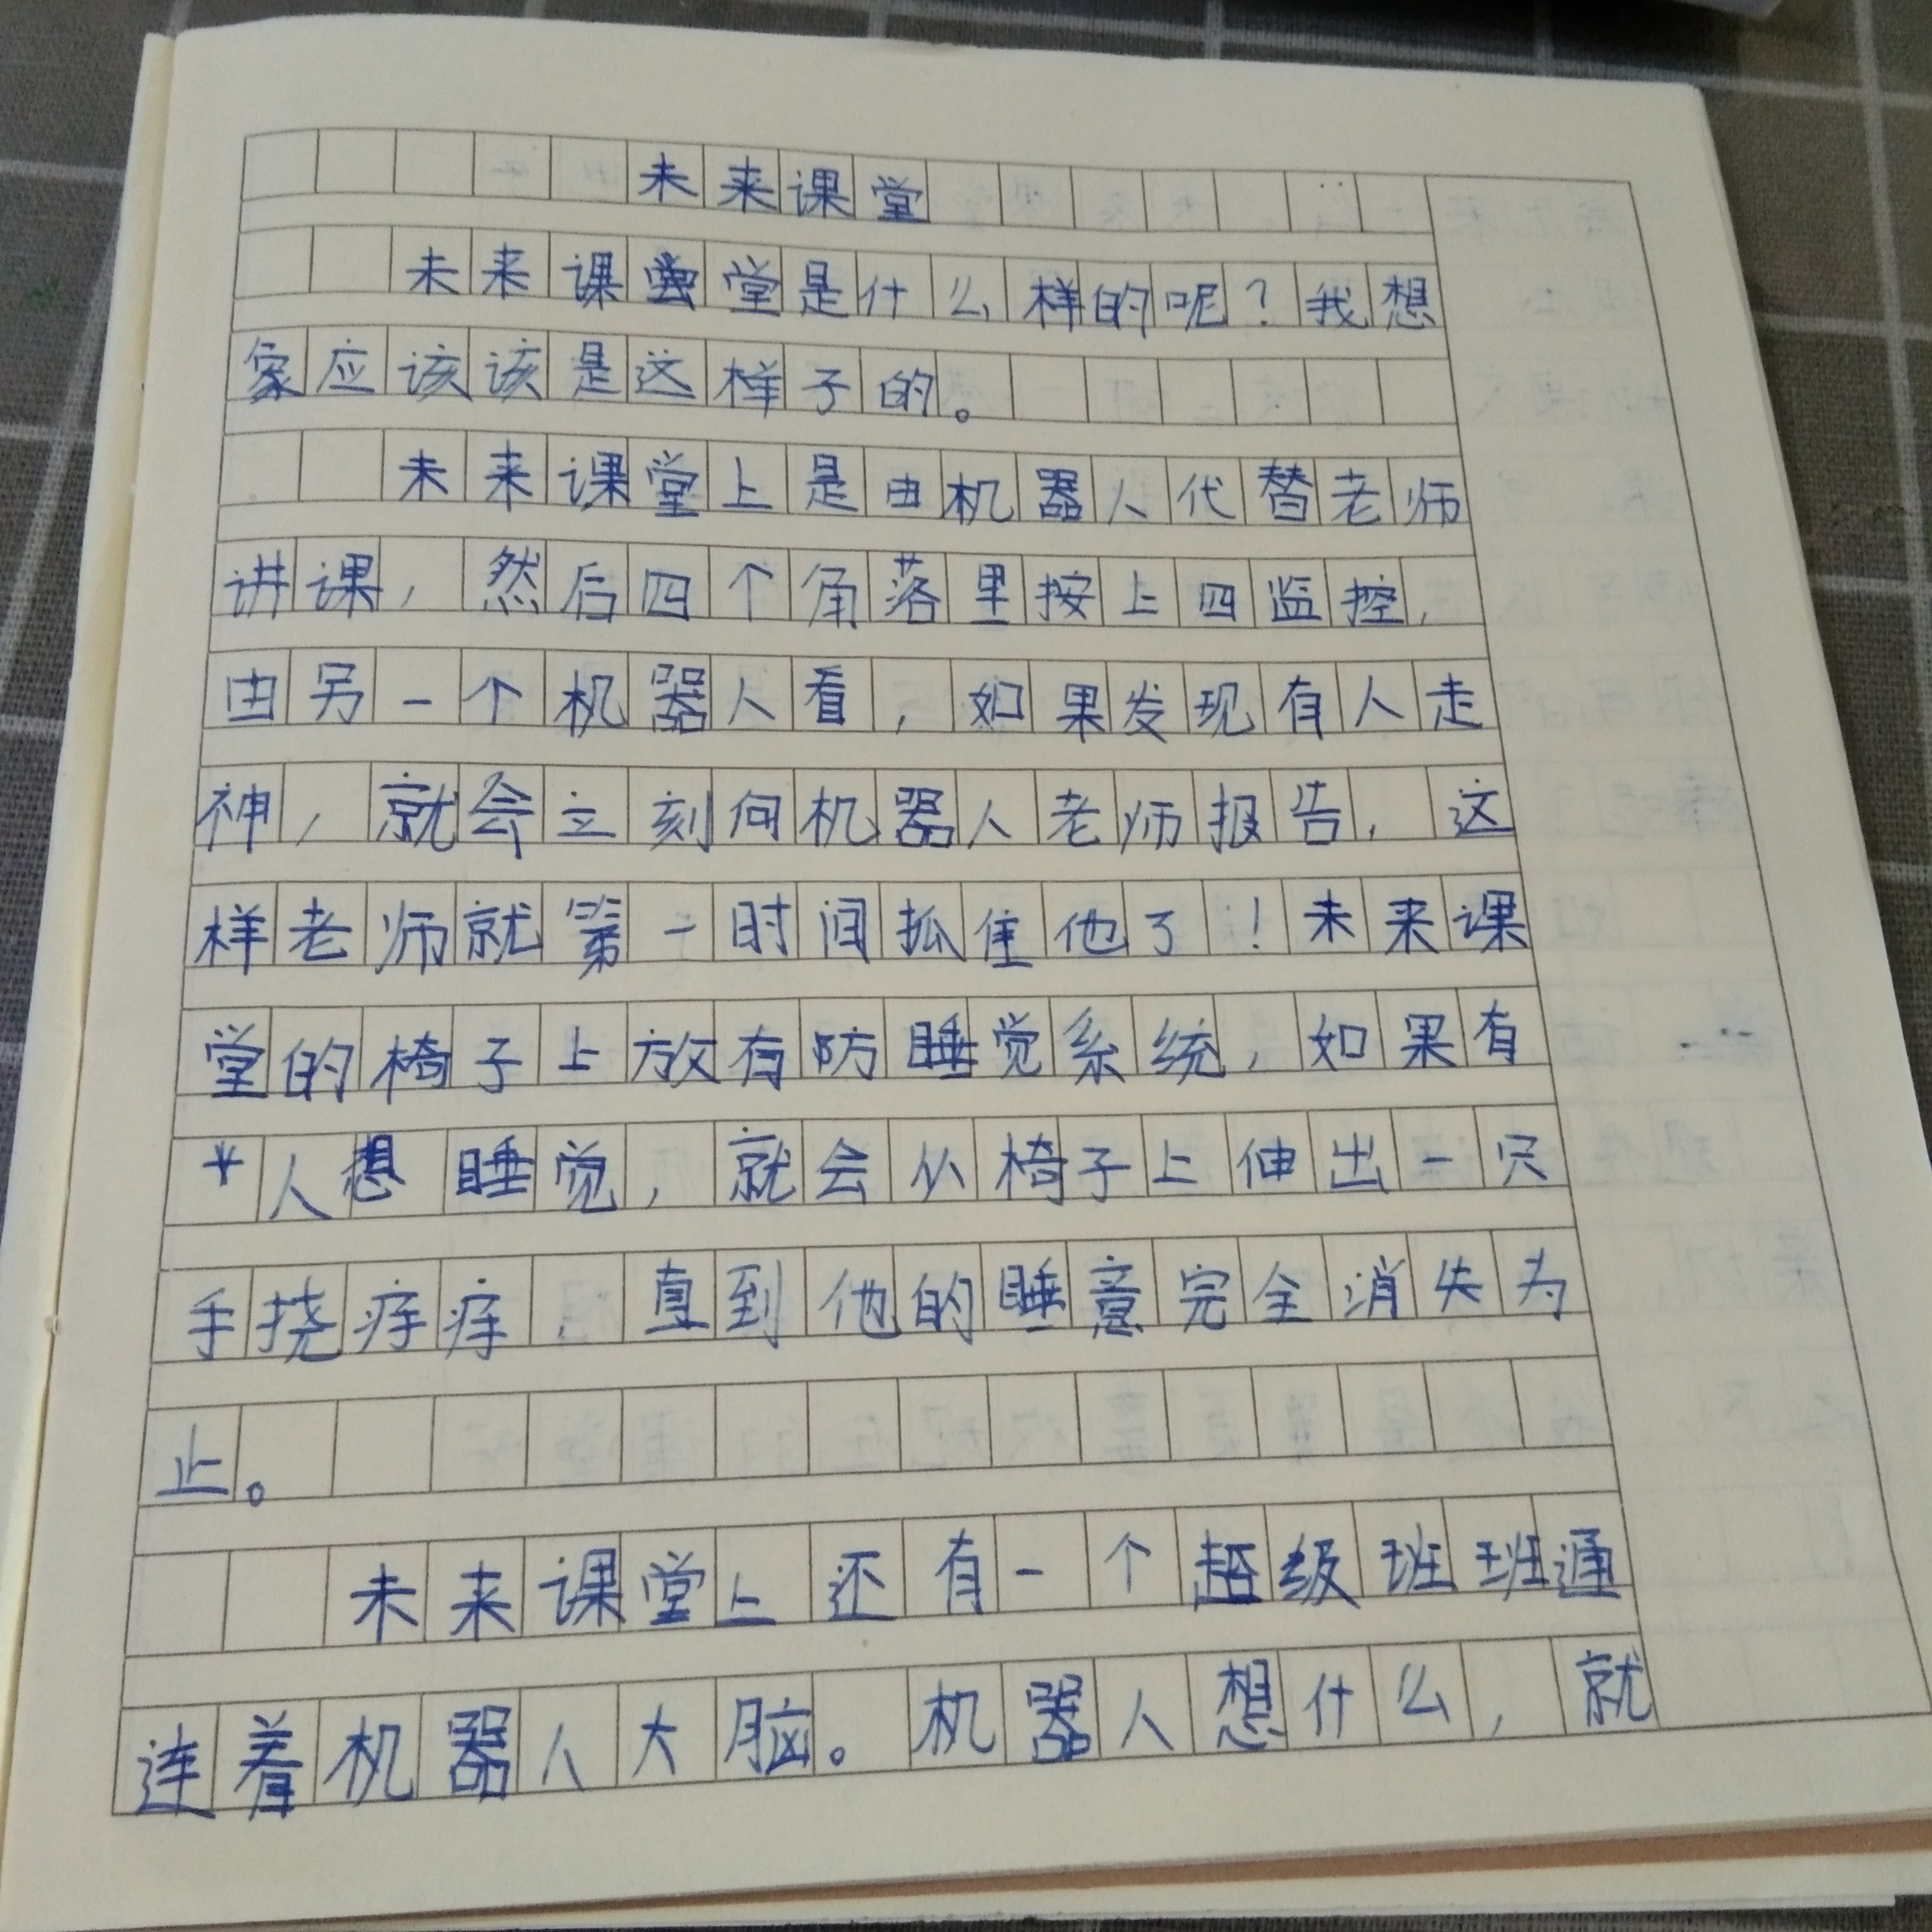 未来课堂
未来课堂是什么样的呢？我想
象应该该是这样子的。
未来课堂上是由机器人代替老师
讲课，然后四个角落里按上四监控，
由另一个机器人看，如果发现有人走
神，就会立刻向机器人老师报告，这
样老师就第一时间抓住他了！未来课
堂的椅子上放有防睡觉系统，如果有
人想睡觉，就会从椅子上伸出一只
手挠痒痒，直到他的睡意完全消失为
止。
未来课堂上还有一个超级班班通
连着机器人大脑。机器人想什么，就